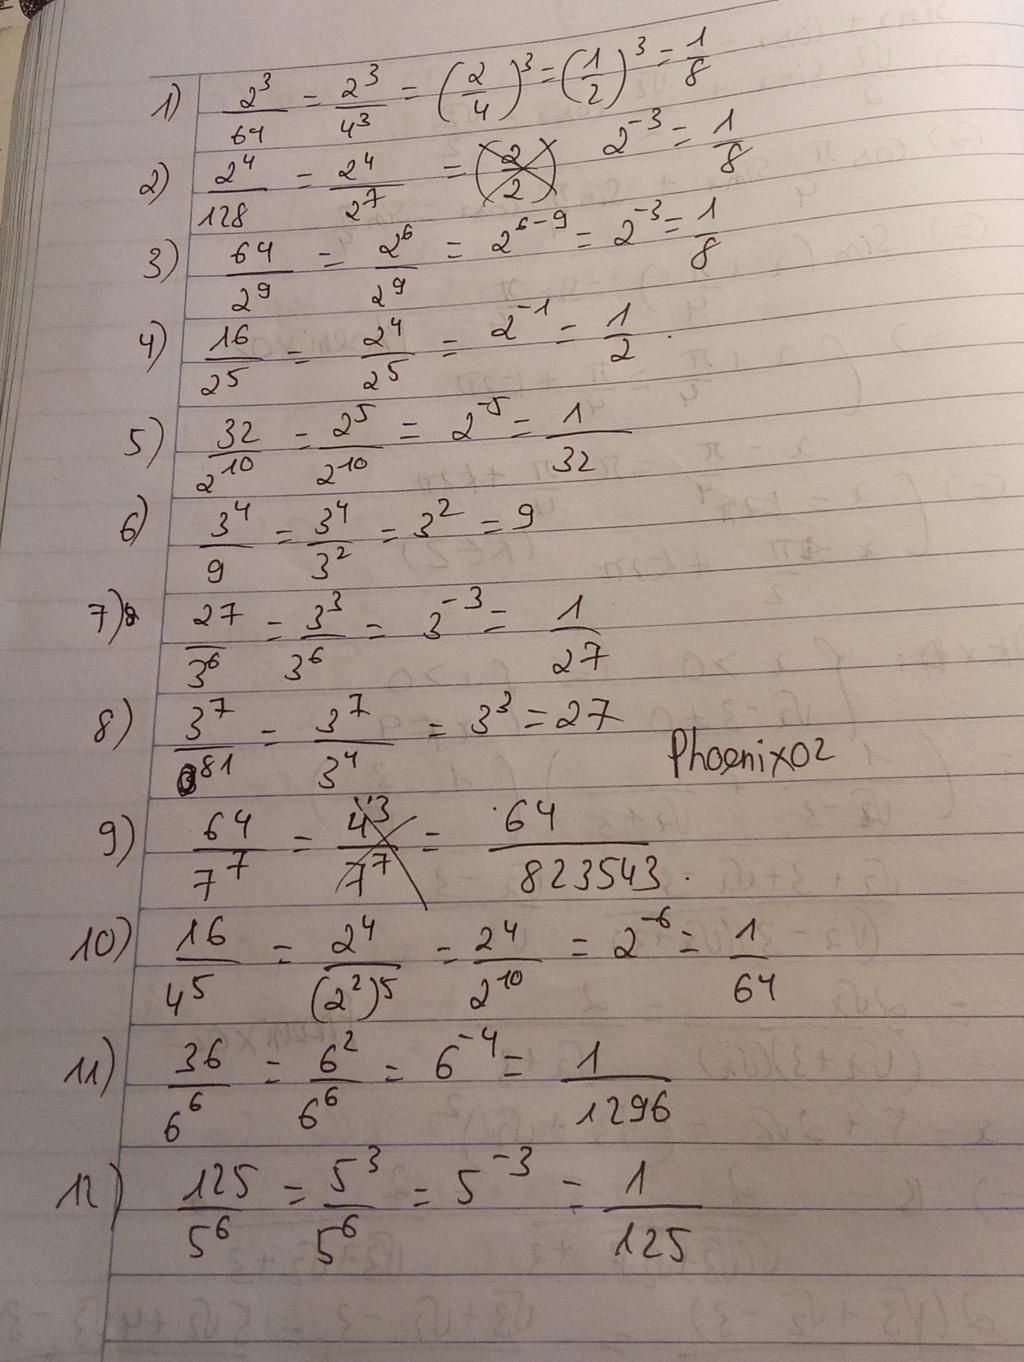 1) 2³/64 = 2³/4³ = (2/4)³ = (1/2)³ = 1/8
2) 2⁴/128 = 2⁴/2⁷ = 2⁻³ = 1/8
3) 64/2⁹ = 2⁶/2⁹ = 2⁶⁻⁹ = 2⁻³ = 1/8
4) 16/2⁵ = 2⁴/2⁵ = 2⁻¹ = 1/2.
5) 32/2¹⁰ = 2⁵/2¹⁰ = 2⁻⁵ = 1/32
6) 3⁴/9 = 3⁴/3² = 3² = 9
7) 27/3⁶ = 3³/3⁶ = 3⁻³ = 1/27
8) 3⁷/81 = 3⁷/3⁴ = 3³ = 27
Phoenix02
9) 64/7⁷ = 4³/7⁷ = 64/823543.
10) 16/4⁵ = 2⁴/(2²)⁵ = 2⁴/2¹⁰ = 2⁻⁶ = 1/64
11) 36/6⁶ = 6²/6⁶ = 6⁻⁴ = 1/1296
12) 125/5⁶ = 5³/5⁶ = 5⁻³ = 1/125